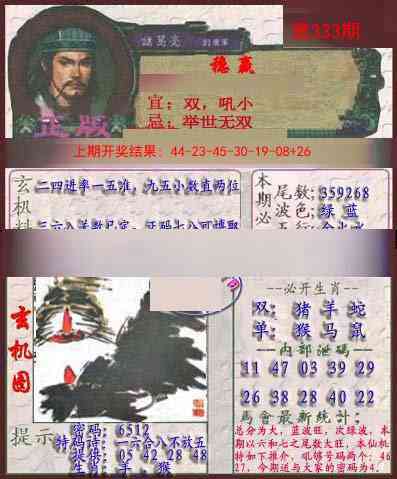 第333期
諸葛亮
稳赢
宜：双，吼小
忌：举世无双
正版
上期开奖结果：44-23-45-30-19-08+26
玄机料
二四进率一五准，九五小数直两位
本期必
尾数：359268
波色：绿 蓝
玄机图
--必开生肖--
双：猪 羊 蛇
单：猴 马 鼠
--内部泄码--
11 47 03 39 29
26 38 28 40 22
馬會最新统计：
总分为大，蓝波旺，次绿波，本
期以六和七之尾数大旺，本仙机
特如下推介，吼够号码两个：46
27，今期送与大家的密码为4．
提示
密码：6512
特码诗：一六合八不放五
提供：05 42 28 48
生肖：羊．猴